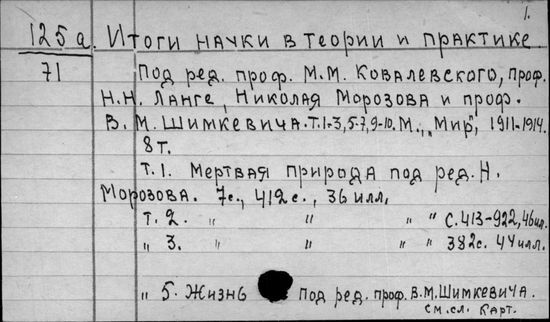 1.
125a. Итоги науки в теории и практике
71 Под ред. проф. М.М. Ковалевского, проф.
Н.Н. Ланге, Николая Морозова и проф.
В. М. Шимкевича. Т.1-3,5-7,9-10. М., „Мир", 1911-1914.
8 т.
т. 1. Мертвая природа под ред. Н.
Морозова. 7с., 412 с., 36 илл.
т. 2. „ „ „ „ с. 413-922, 46 ил.
„ 3. „ „ „ „ 382с. 44 илл.
„ 5. Жизнь под ред. проф. В.М. Шимкевича.
см. сл. карт.